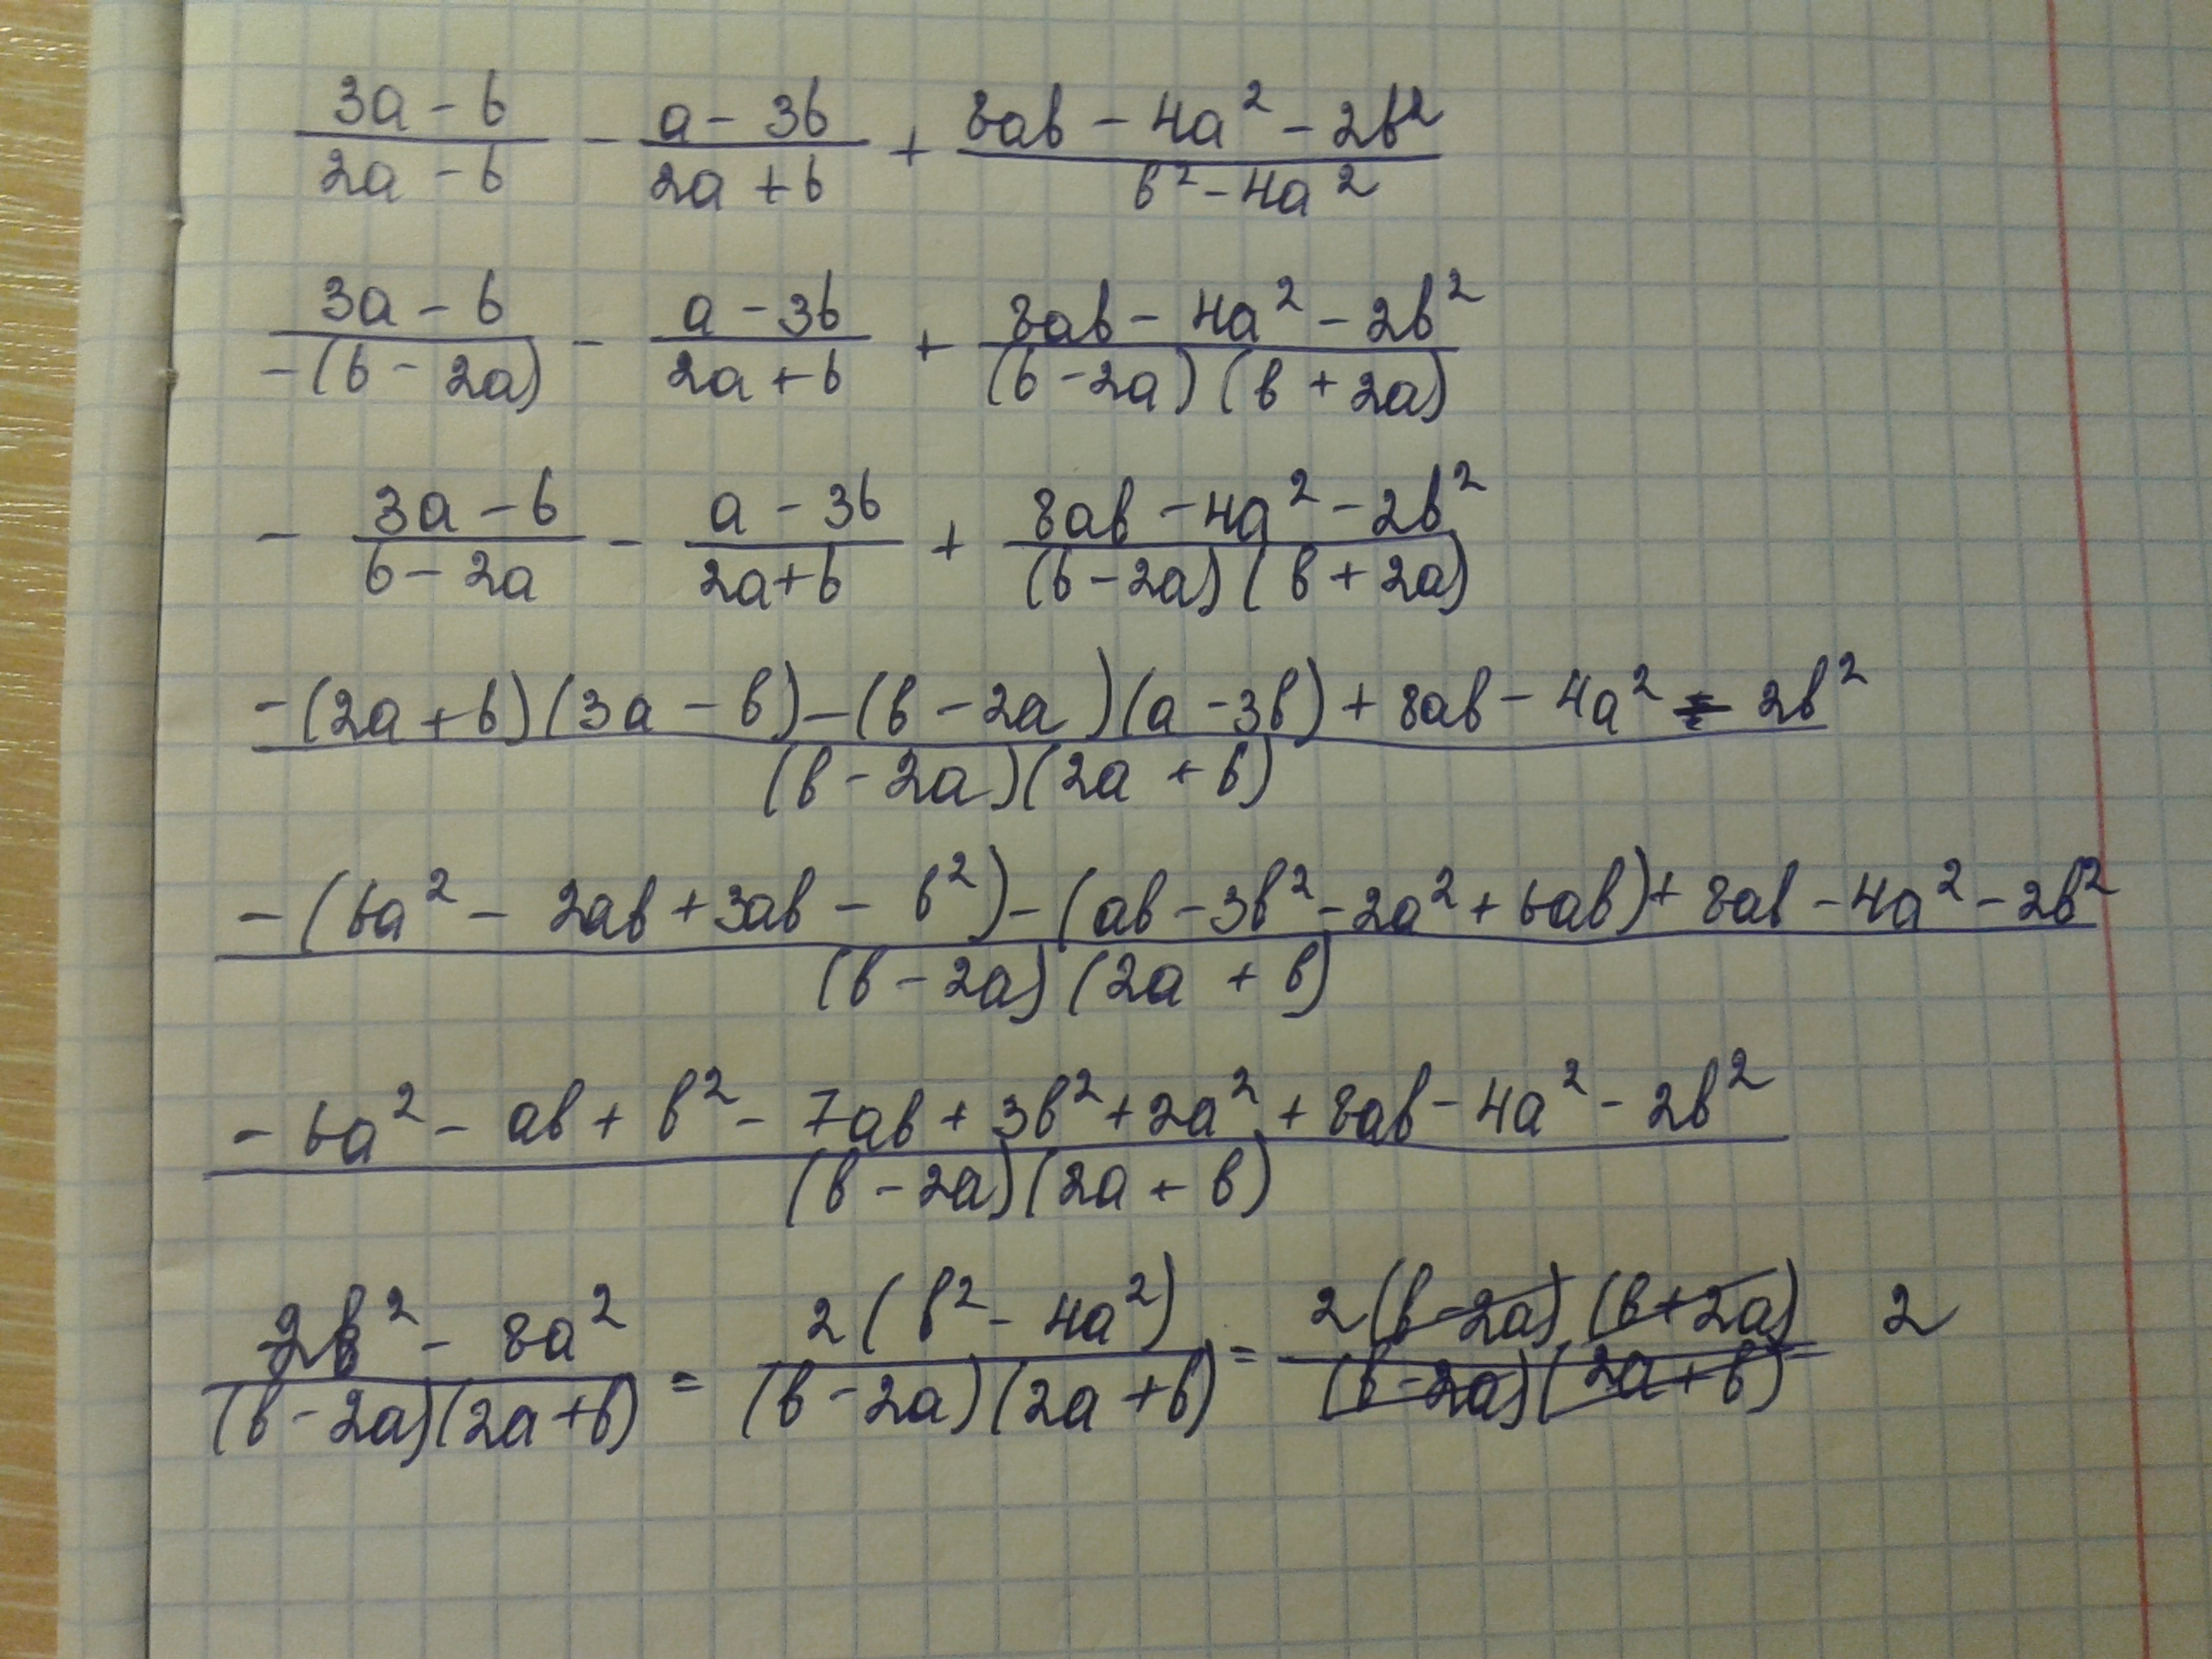 (3a - b)/(2a - b) - (a - 3b)/(2a + b) + (8ab - 4a² - 2b²)/(b² - 4a²)
(3a - b)/(-(b - 2a)) - (a - 3b)/(2a + b) + (8ab - 4a² - 2b²)/((b - 2a)(b + 2a))
- (3a - b)/(b - 2a) - (a - 3b)/(2a + b) + (8ab - 4a² - 2b²)/((b - 2a)(b + 2a))
(-(2a + b)(3a - b) - (b - 2a)(a - 3b) + 8ab - 4a² - 2b²)/((b - 2a)(2a + b))
(-(6a² - 2ab + 3ab - b²) - (ab - 3b² - 2a² + 6ab) + 8ab - 4a² - 2b²)/((b - 2a)(2a + b))
(-6a² - ab + b² - 7ab + 3b² + 2a² + 8ab - 4a² - 2b²)/((b - 2a)(2a + b))
(2b² - 8a²)/((b - 2a)(2a + b)) = (2(b² - 4a²))/((b - 2a)(2a + b)) = (2(b - 2a)(b + 2a))/((b - 2a)(2a + b)) 2